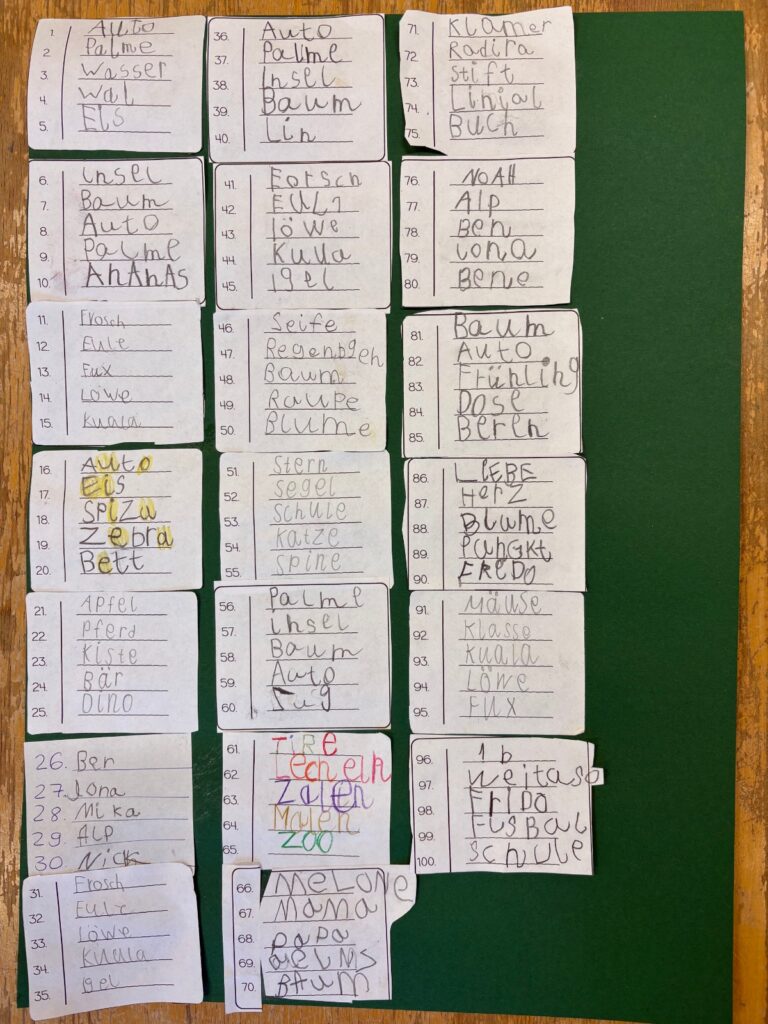 1. Auto
2. Palme
3. Wasser
4. Wal
5. Eis
6. insel
7. Baum
8. Auto
9. Palme
10. AnAnAs
11. Frosch
12. Eule
13. Fux
14. Löwe
15. Kuala
16. Auto
17. Eis
18. SPiZa
19. Zebra
20. Bett
21. Apfel
22. Pferd
23. Kiste
24. Bär
25. Dino
26. Ben
27. Jona
28. Mika
29. Alp
30. Nick
31. Frosch
32. Eule
33. Löwe
34. Kuala
35. igel
36. Auto
37. Palme
38. Insel
39. Baum
40. Lin
41. Forsch
42.
43. Löwe
44. Kuala
45. igel
46. Seife
47. Regenbgen
48. Baum
49. Raupe
50. Blume
51. Stern
52. Segel
53. Schule
54. Katze
55. Spine
56. Palme
57. insel
58. Baum
59. Auto
60.
61. TiRe
62. Lecheln
63. Zalen
64. Malen
65. ZOO
66. MeLONe
67. MaMa
68. paPa
69.
70. BAum
71. Klamer
72. Radira
73. Stift
74. Linial
75. Buch
76. NOAH
77. Alp
78. Ben
79. Jona
80. Bene
81. Baum
82. Auto
83. Frühling
84. Dose
85. Beren
86. LIEBE
87. HerZ
88. Blume
89. PungKt
90. FReDO
91. Mäuse
92. Klasse
93. Kuala
94. Löwe
95. Fux
96. 1 b
97. Weitaso
98. FriDO
99. FusBal
100. Schule